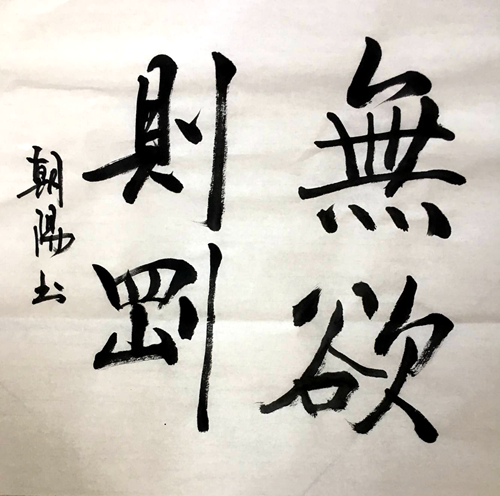 無欲
則剛
朝陽书